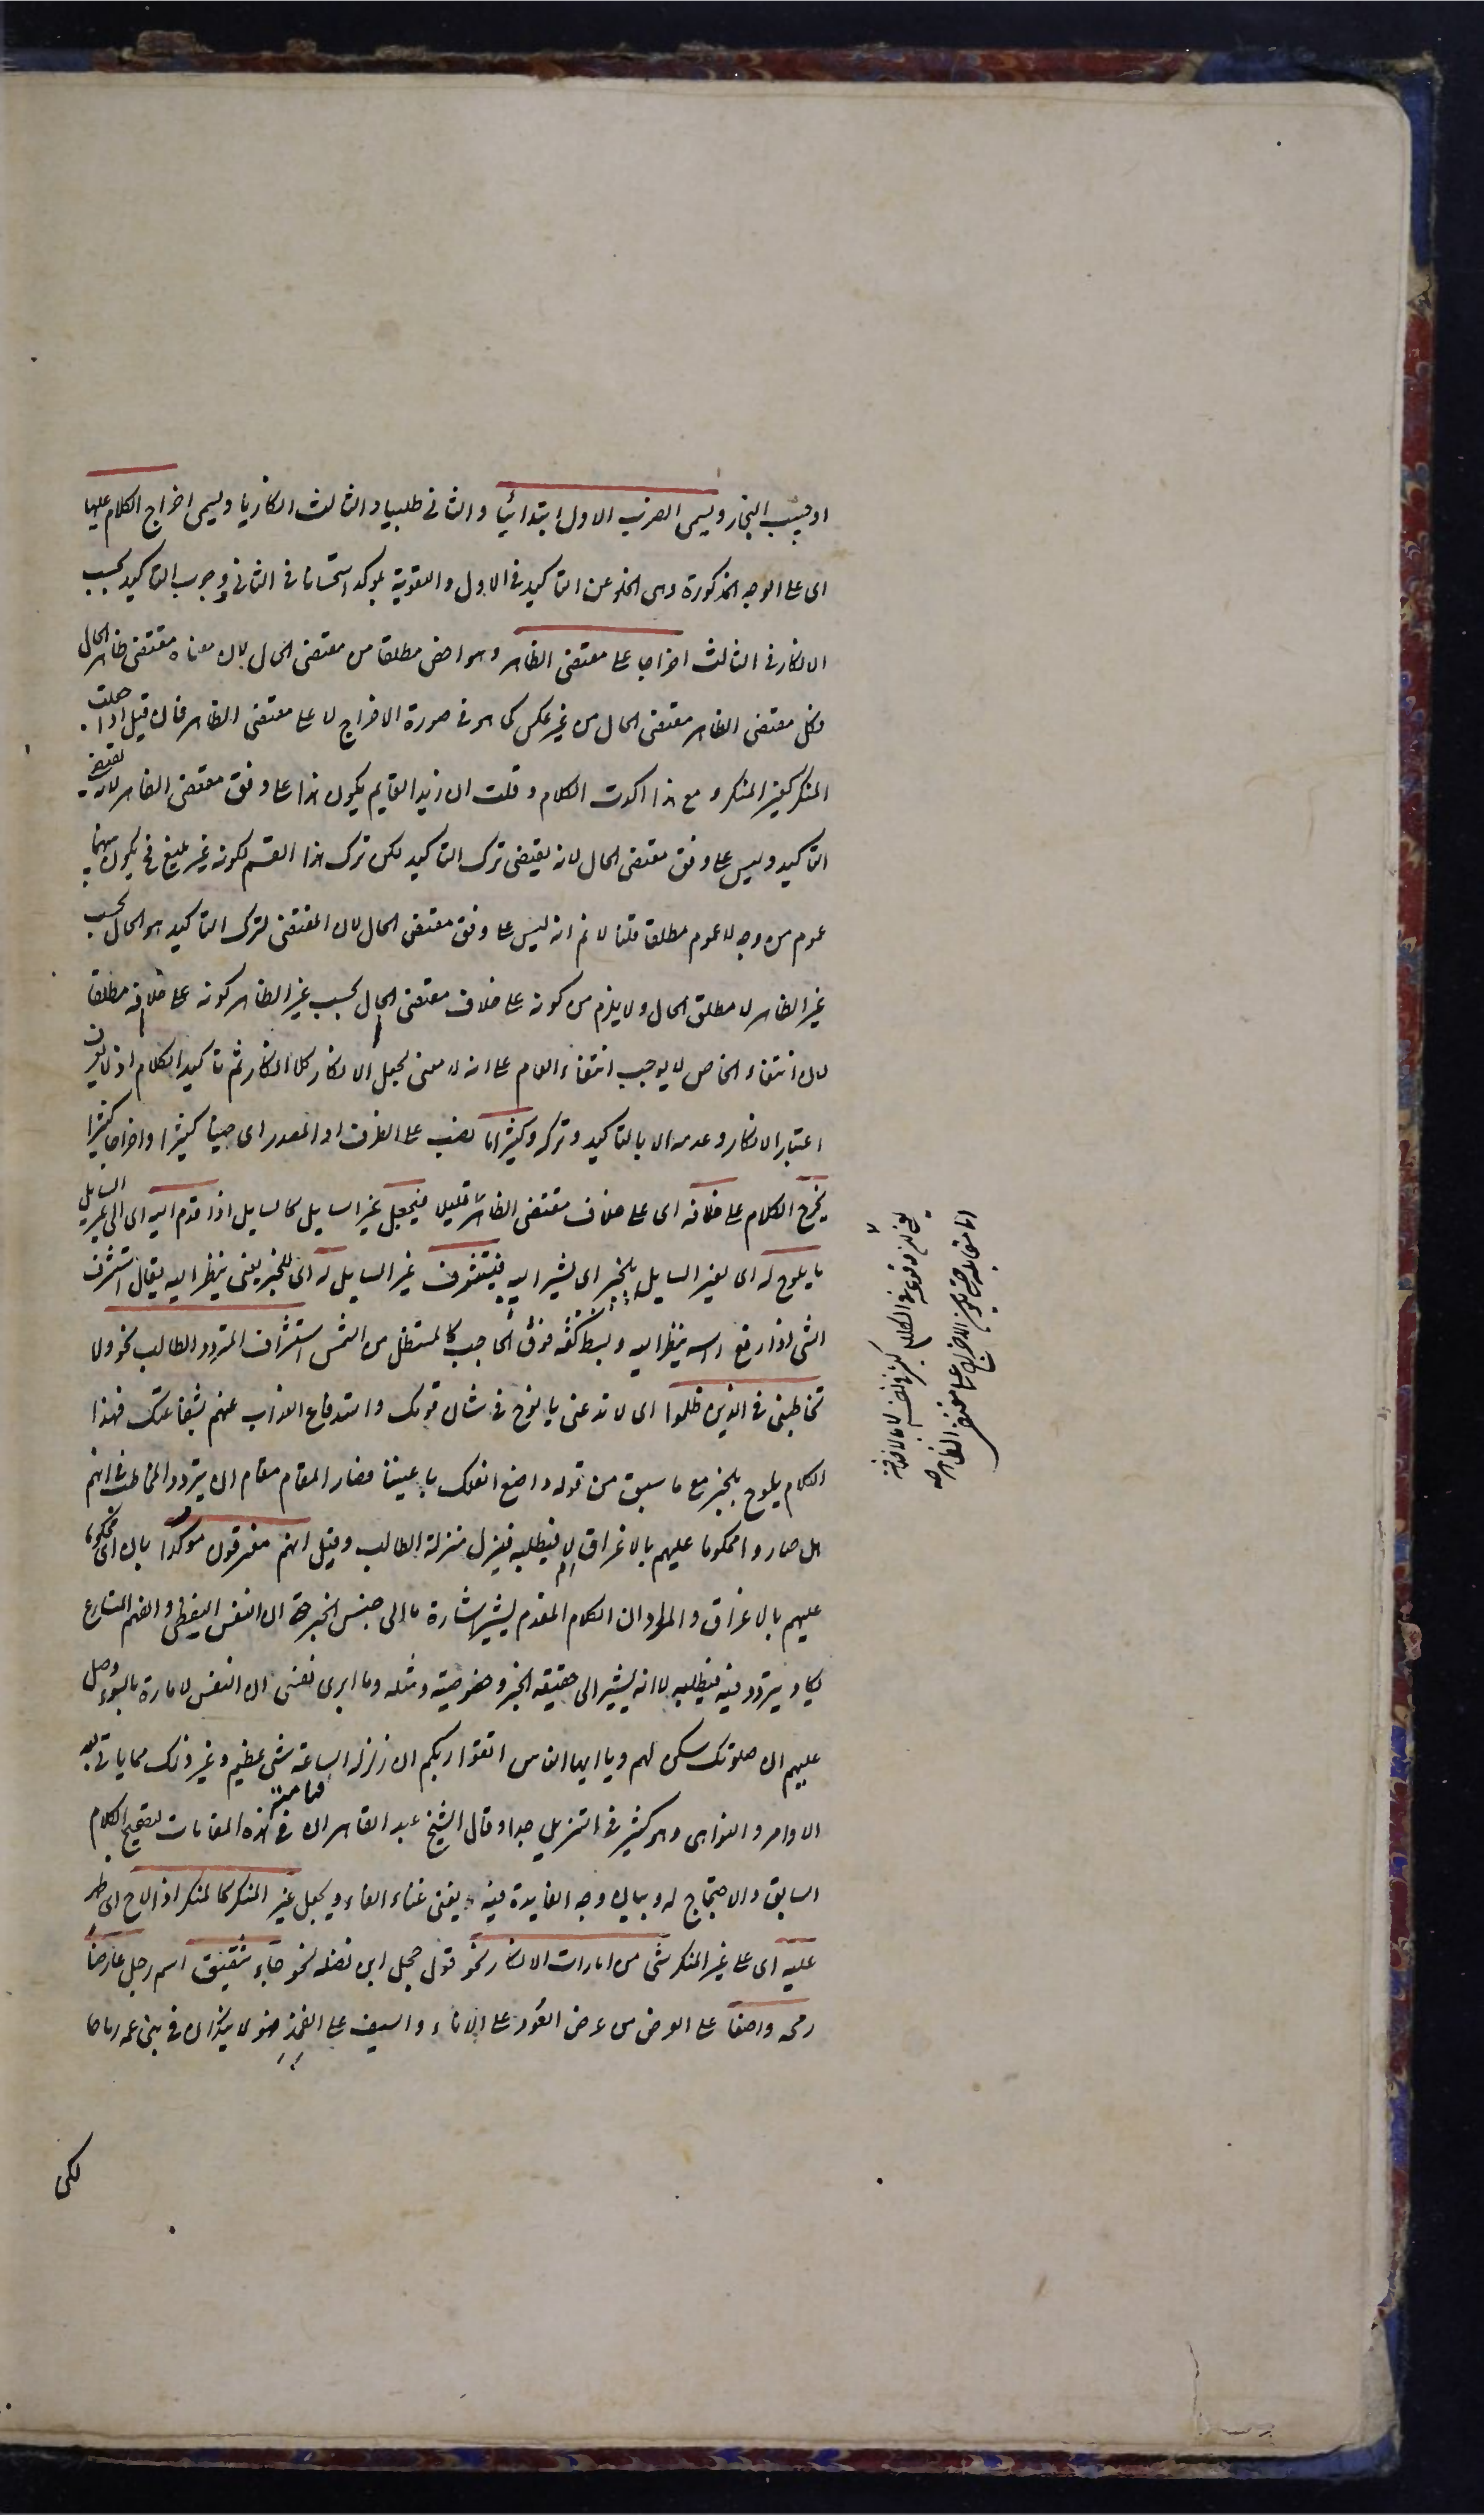 او بحسب النجار ويسمى الضرب الاول ابتدائيا والثانى طلبيا والثالث انكاريا ويسمى اخراج الكلام عليها
اى على الوجه المذكورة وهى الخلو عن التاكيد فى الاول والتقوية بمؤكد استحسانا فى الثانى ووجوب التاكيد بحسب
الانكار فى الثالث اخراجا على مقتضى الظاهر وهو اخص مطلقا من مقتضى الحال لان معناه مقتضى ظاهر الحال
وكل مقتضى الظاهر مقتضى الحال من غير عكس كما هو فى صورة الاخراج لا على مقتضى الظاهر فان قيل اذا جعلت
المنكر كغير المنكر و مع هذا اكدت الكلام و قلت ان زيدا لقايم يكون هذا على وفق مقتضى الظاهر لانه يقتضى
التاكيد وليس على وفق مقتضى الحال لانه يقتضى ترك التاكيد لكن ترك هذا القسم لكونه غير بليغ فح يكون بينهما
عموم من وجه لا عموم مطلقا قلنا لا نم انه ليس على وفق مقتضى الحال لان المقتضى لترك التاكيد هو الحال بحسب
غير الظاهر لا مطلق الحال ولا يلزم من كونه على خلاف مقتضى الحال بحسب غير الظاهر كونه على خلافه مطلقا
لان انتفاء الخاص لا يوجب انتفاء العام على انه لا معنى لجعل الانكار كلا انكار ثم تاكيد الكلام اذ لا يعرف
اعتبار الانكار وعدمه الا بالتاكيد وتركه وكثيرا ما نصب على الظرف او المصدر اى حينا كثيرا واخراجا كثيرا
يخرج الكلام على خلافه اى على خلاف مقتضى الظاهر فيجعل غير السايل كالسايل اذا قدم اليه اى الى غير السايل
ما يلوح له اى لغير السايل بالخبر اى يشير اليه فيستشرف غير السايل له اى للخبر يعنى ينظر اليه يقال استشرف
الشى اذا رفع راسه ينظر اليه وبسط كفه فوق الحاجب كالمستظل من الشمس استشراف المتردد الطالب نحو ولا
تخاطبنى فى الذين ظلموا اى لا تدعنى يا نوح فى شان قومك واستدفاع العذاب عنهم بشفاعتك فهذا
الكلام يلوح بالخبر مع ما سبق من قوله واصنع الفلك باعيننا فصار المقام مقام ان يتردد المخاطب فى انهم
هل صاروا محكوما عليهم بالاغراق ام لا فيطلبه فينزل منزلة الطالب وقيل انهم مغرقون مؤكدا بان اى محكوما
عليهم بالاغراق والمراد ان الكلام المقدم يشير اشارة ما الى جنس الخبر حتى ان النفس اليقظى والفهم المتسارع
يكاد يتردد فيه فيطلبه لا انه يشير الى حقيقة الخبر وخصوصيته ومثله وما ابرى نفسى ان النفس لامارة بالسوء وصل
عليهم ان صلوتك سكن لهم ويا ايها الناس اتقوا ربكم ان زلزلة الساعة شى عظيم وغير ذلك مما ياتى بعد
الاوامر والنواهى وهو كثير فى التنزيل جدا وقال الشيخ عبد القاهر ان فى هذه المقامات لتصحيح الكلام
السابق والاحتجاج له وبيان وجه الفايدة فيه يغنى غناء الفاء ويجعل غير المنكر كالمنكر اذا لاح اى ظهر
عليه اى على غير المنكر شى من امارات الانكار نحو قول حجل ابن نضله نحو جاء شقيق اسم رجل عارضا
رمحه واضعا على العرض من عرض العود على الاناء والسيف على الفخذ فهو لا ينكر ان فى بنى عمه رماحا
لكن